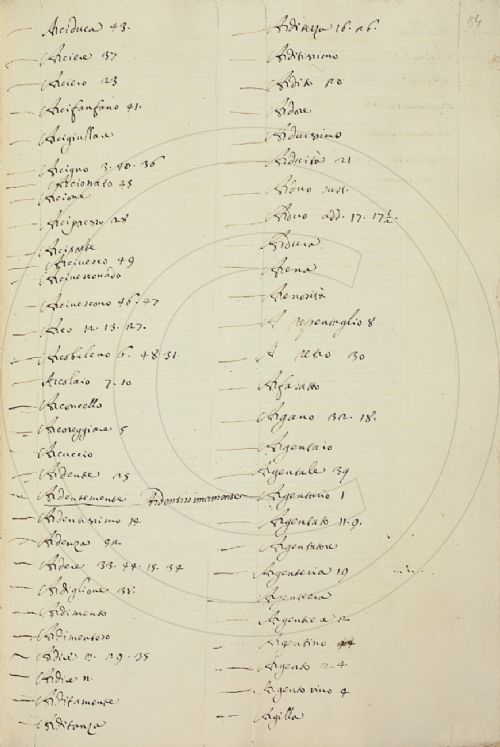 Arciduca 43.
Arciere 37
Arciero 23
Arcifanfano 41.
Arcigiullare
Arcigno 3. 40. 36
Arcionato 43
Arcione
Arcipresso 28
Arciprete
Arcivesco 49
Arcivescovado
Arcivescovo 46. 47
Arco 12. 13. 27.
Arcobaleno 6. 48. 31.
Arcolaio 7. 10
Arconcello
Arcoreggiare 5
Arcuccio
Ardente 25
Ardentemente Ardentissimamente
Ardentissimo 14
Ardenza 42.
Ardere 33. 44. 15. 34
Ardiglione 38.
Ardimento
Ardimentoso
Ardire 29. 35
Ardire n.
Arditamente
Arditanza
84
Arditezza 16. 26.
Arditissimo
Ardito 20
Ardore
Arduissimo
Arduità 21
Arduo sust.
Arduo add. 17. 17½.
Ardura
Arena
Arenosità
A repentaglio 8
A retro 30
Arfasatto
Argano 32. 18.
Argentaio
Argentale 39
Argentario 1
Argentato 11. 9.
Argentatore
Argenteria 19
Argentiera
Argentiere 2
Argentino
Argento 2. 4
Argento vivo 4
Argilla